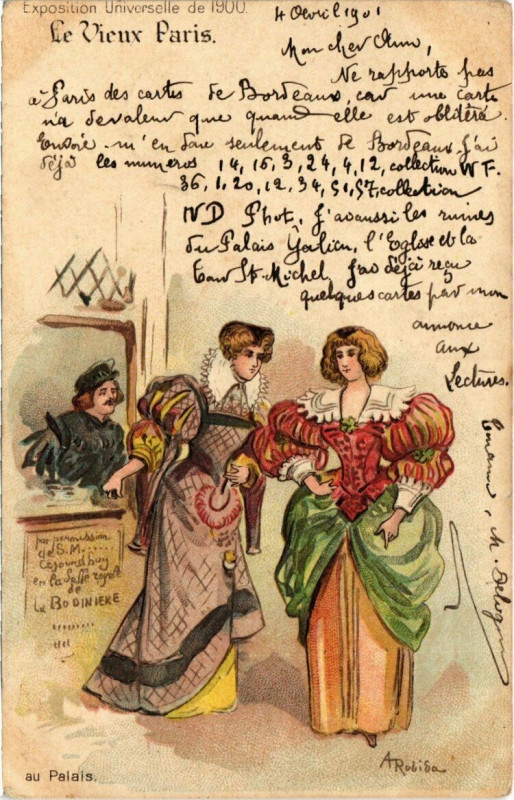 Exposition Universelle de 1900.
Le Vieux Paris.
4 Avril 1901
Mon cher Ami,
Ne rapporte pas
à Paris des cartes de Bordeaux, car une carte
n'a de valeur que quand elle est oblitéré.
Envoie m'en donc seulement de Bordeaux j'ai
déjà les numeros 14, 16, 3, 24, 4, 12, collection W F.
36, 1, 20, 12, 34, 51, 57, collection
ND Phot, J'ai aussi les ruines
du Palais Galien, l'Eglise et la
Tour St-Michel, J'ai déjà reçu
quelques cartes par mon
annonce
aux
Lectures.
M.
par permission
de S. M. .....
en la Salle
de
La BODINIERE
A Robida
au Palais.